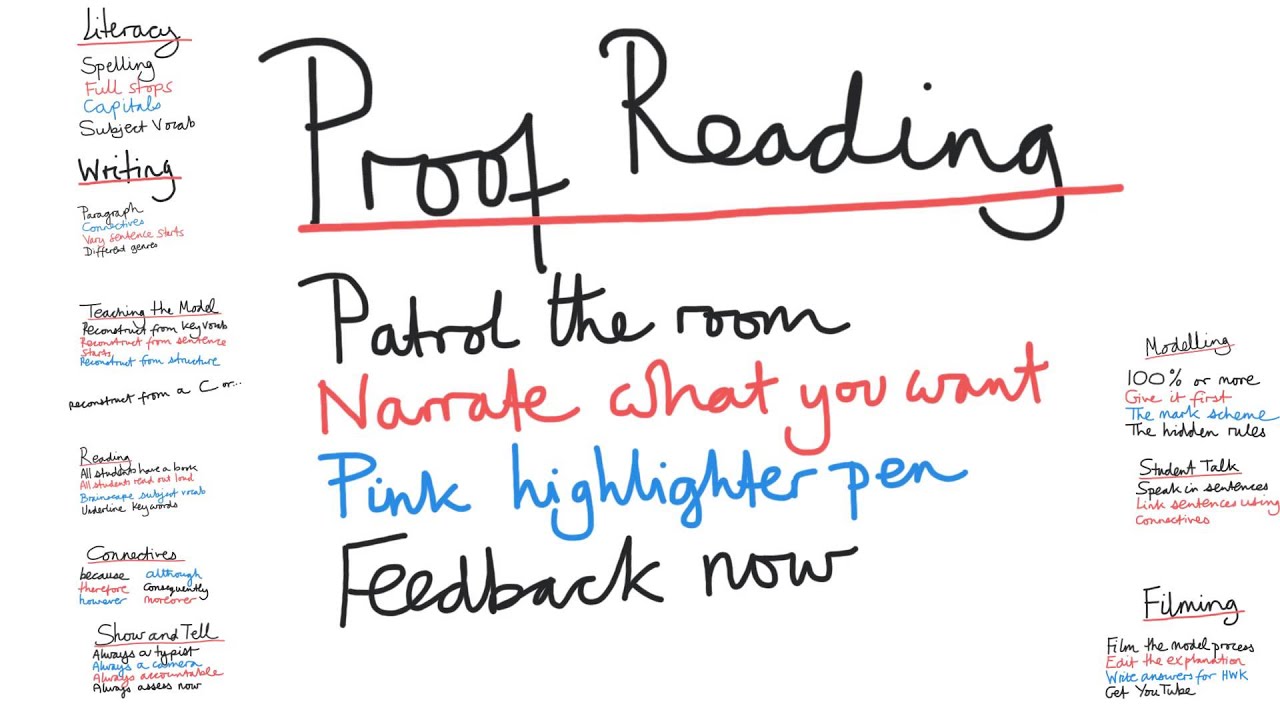 Literacy
Spelling
Full stops
Capitals
Subject Vocab
Writing
Paragraph
Connectives
Vary sentence starts
Different genres
Teaching the Model
Reconstruct from key vocab
Reconstruct from sentence
starts
Reconstruct from structure
reconstruct from a C or...
Reading
All students have a book
All students read out loud
Brainscape subject vocab
Underline key words
Connectives
because although
therefore consequently
however moreover
Show and Tell
Always a typist
Always a camera
Always accountable
Always assess now
Proof Reading
Patrol the room
Narrate what you want
Pink highlighter pen
Feedback now
Modelling
100% or more
Give it first
The mark scheme
The hidden rules
Student Talk
Speak in sentences
Link sentences using
connectives
Filming
Film the model process
Edit the explanation
Write answers for HWK
Get YouTube